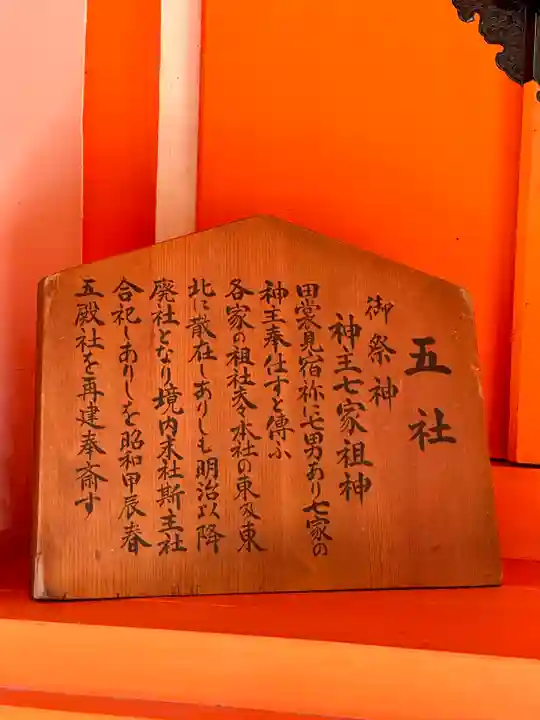 五社
御祭神
神主七家祖神
田裳見宿祢に七男あり七家の
神主奉仕すと傳ふ
各家の祖社夫々本社の東及東
北に散在しありしも明治以降
廃社となり境内末社斯主社
合祀しありしを昭和甲辰春
五殿社を再建奉斎す